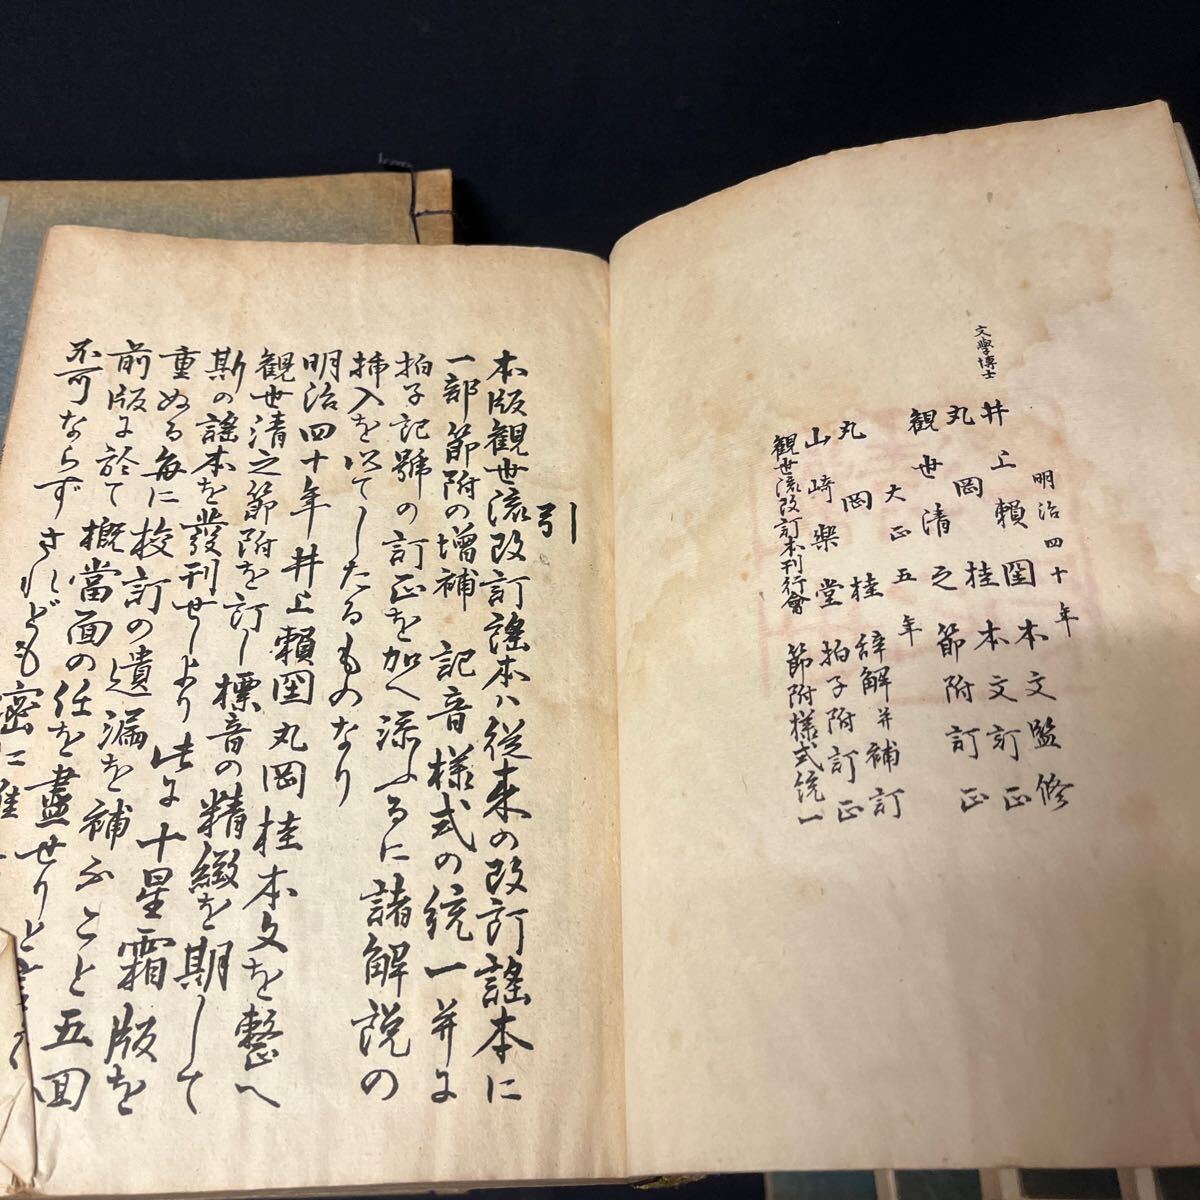 明治四十年
文學博士
井上賴圀本文監修
丸岡桂本文訂正
観世清之節附訂正
大正五年
丸岡桂辞解并補訂
山崎樂堂拍子附訂正
観世流改訂本刊行會節附様式統一
引
本版観世流改訂謡本ハ從来の改訂謡本に
一部節附の増補記音様式の統一并に
拍子記號の訂正を加へ添ふるに諸解説の
挿入を以てしたるものなり
明治四十年井上賴圀丸岡桂本文を整へ
観世清之節附を訂し標音の精緻を期して
斯の謡本を發刊せしより此に十星霜版を
重ぬる毎に校訂の遺漏を補ふこと五回
前版に於て概當面の任を盡せりと
不可ならずされども密に